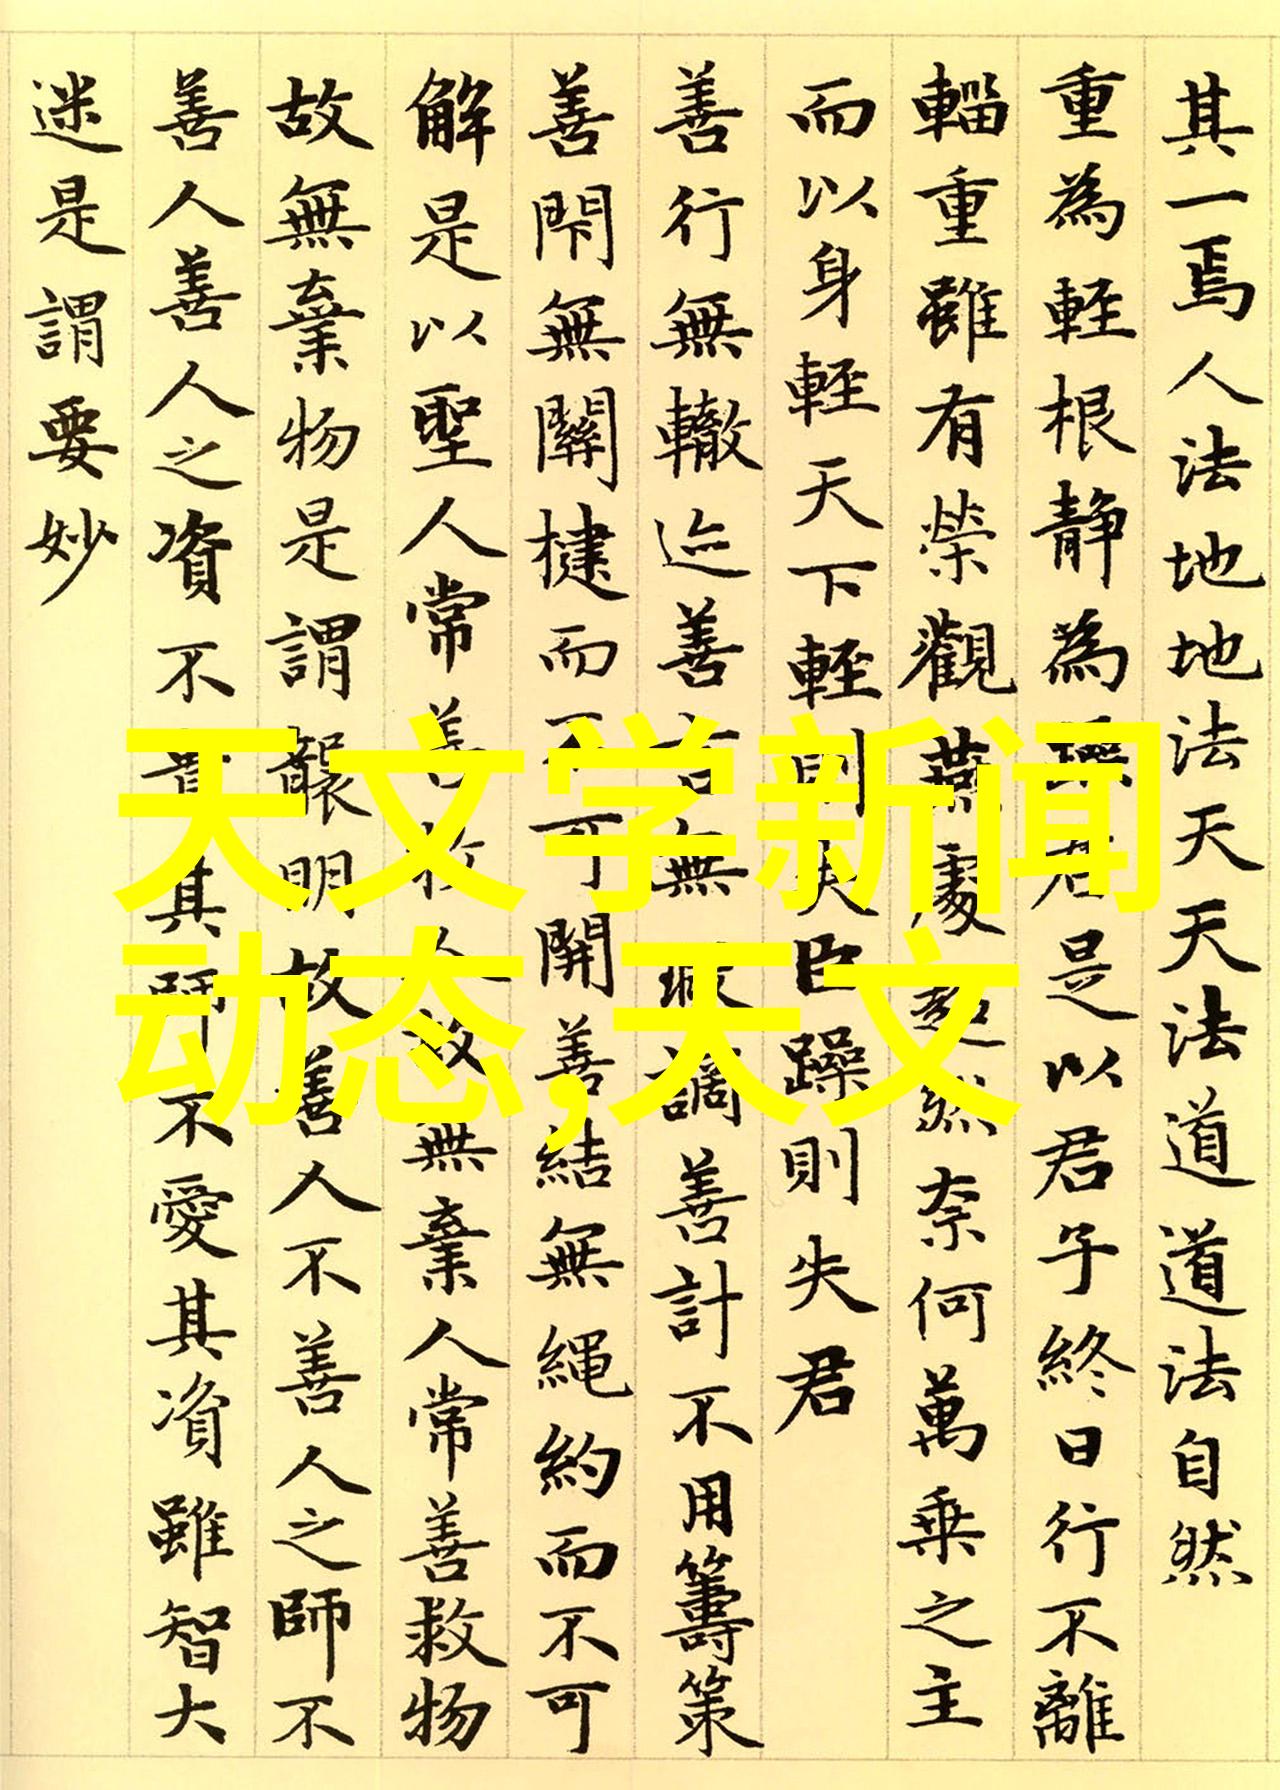 其一焉人法地地法天天法道道法自然
重為輕根靜為躁君是以君子終日行不離
輜重雖有榮觀燕處超然奈何萬乘之主
而以身輕天下輕則失臣躁則失君
善行無轍迹善言無瑕謫善計不用籌策
善閇無關楗而不可開善結無繩約而不可
解是以聖人常善救人故無棄人常善救物
故無棄物是謂襲明故善人不善人之師不
善人善人之資不貴其師不愛其資雖智大
迷是謂要妙
天文学新闻
动态,天文